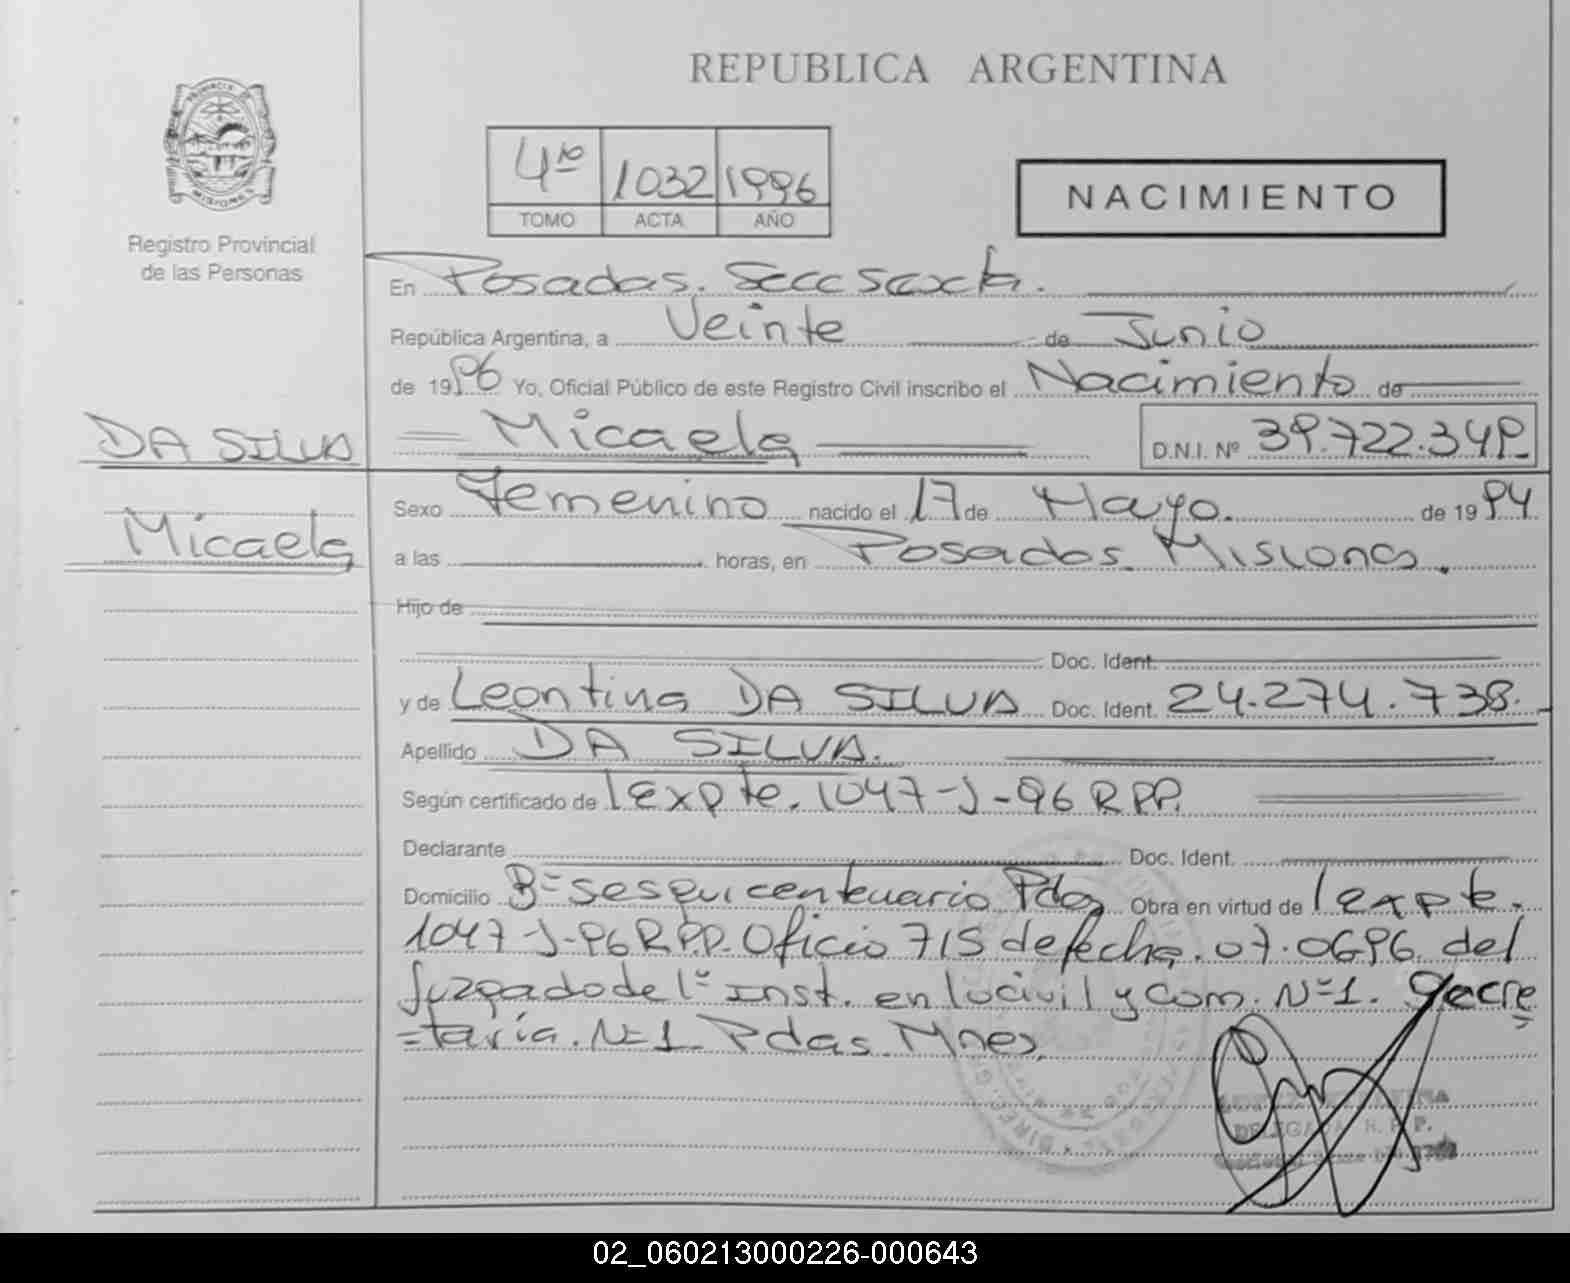 REPUBLICA ARGENTINA
PROVINCIA DE
MISIONES
Registro Provincial
de las Personas
4to 1032 1996
TOMO ACTA AÑO
NACIMIENTO
En Posadas. Secc Sexta.
República Argentina, a Veinte de Junio
de 1996 Yo, Oficial Público de este Registro Civil inscribo el Nacimiento de
DA SILVA
Micaela
D.N.I. Nº 39.722.349
Micaela
Sexo Femenino nacido el 17 de Mayo. de 1994
a las horas, en Posadas. Misiones.
Hijo de
Doc. Ident.
y de Leontina DA SILVA Doc. Ident. 24.274.738.
Apellido DA SILVA.
Según certificado de Expte. 1047-J-96 RPP.
Declarante Doc. Ident.
Domicilio Bº Sesquicentenario Pdas Obra en virtud de Expte.
1047-J-96 R.P.P. Oficio 715 de fecha. 07.0696. del
Juzgado de 1º Inst. en lo civil y Com. Nº1. Secre
=taría. Nº1. Pdas. Mnes.
DELEGADA R. P. P.
02_060213000226-000643